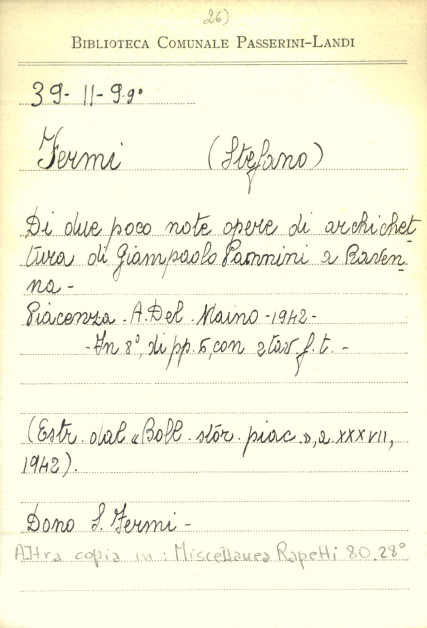 26)
BIBLIOTECA COMUNALE PASSERINI-LANDI
39-11-9.9°
Fermi (Stefano)
Di due poco note opere di archichet
tura di Giampaolo Pannini a Raven=
na-
Piacenza. A. Del. Maino-1942-
-In 8°, di pp. 5, con 2 tav. f. t. -
(Estr. dal «Boll. stor. piac.», a. XXXVII,
1942).
Dono S. Fermi-
Altra copia in: Miscellanea Rapetti 80.28°